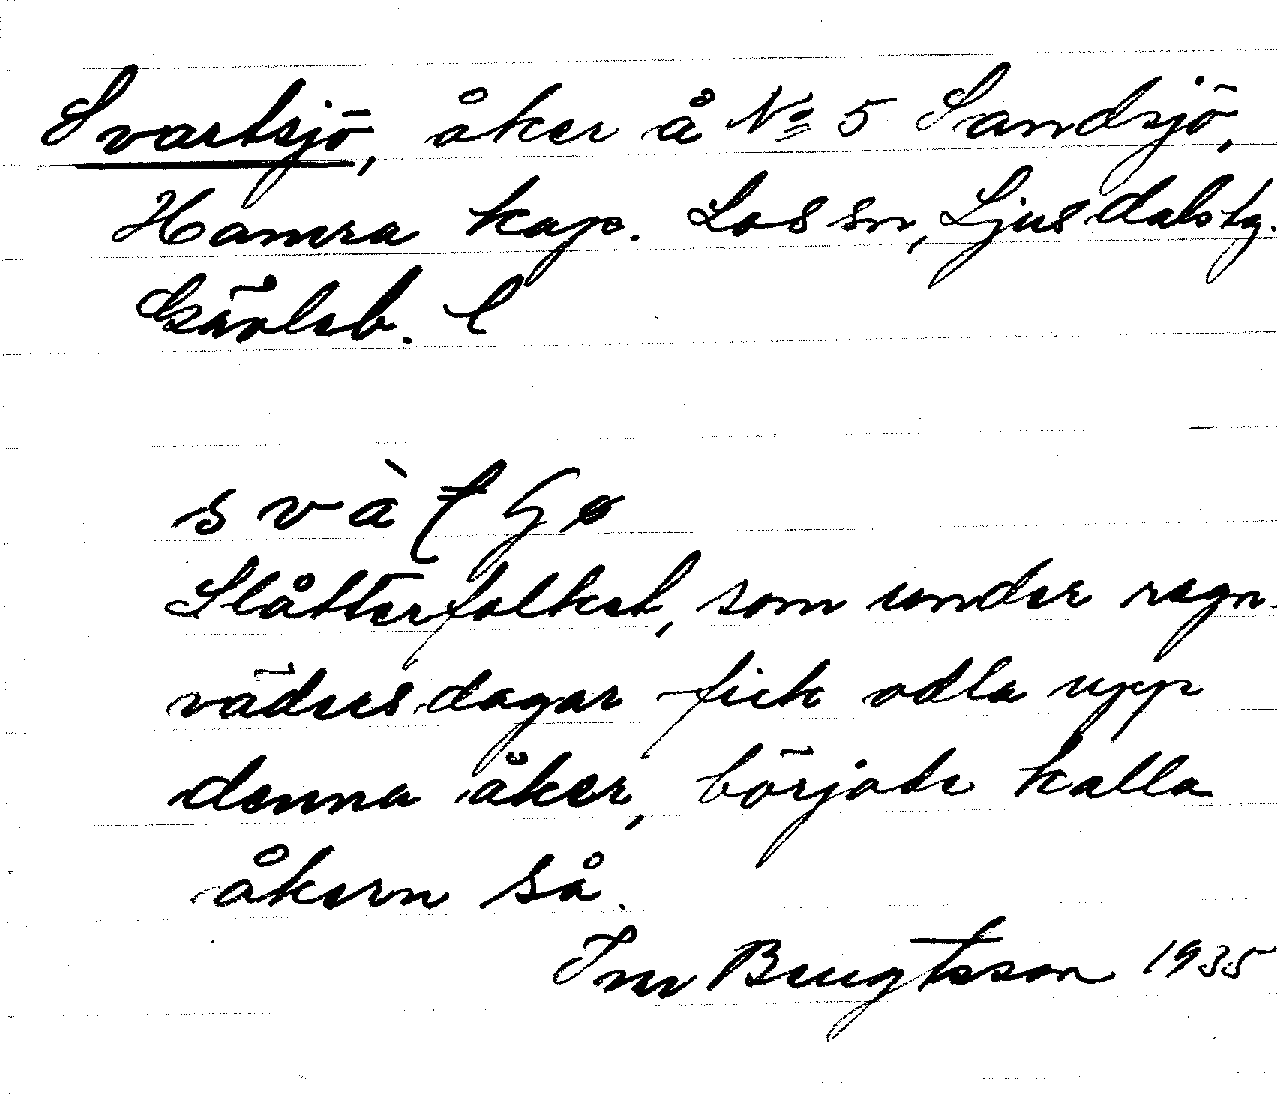 Svartsjö, åker å No 5 Sandsjö,
Hamra kap. Los sn, Ljusdals tg.
Gävleb. l
Slåtterfolket, som under regn-
vädersdagar fick odla upp
denna åker, började kalla
åkern så.
Bengtsson 1935